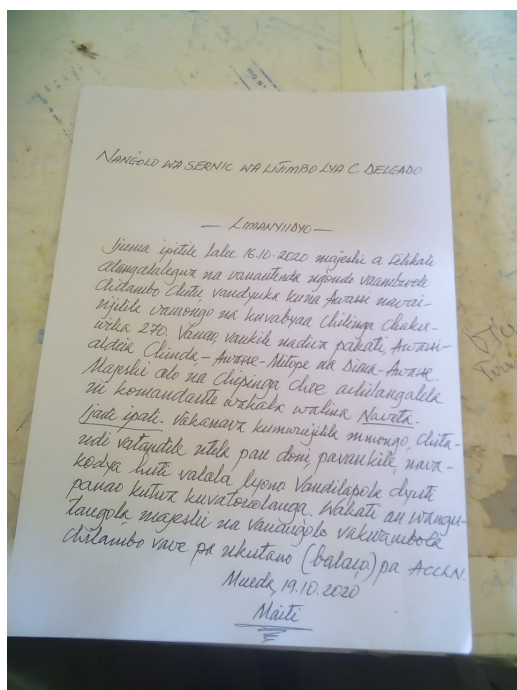 NANGOLO WA SERNIC WA LITIMBO LYA C. DELGADO
— LIMANYIIDYO —
Ijuma ipitile Lalee 16.10.2020 majeshi a Silikali
alangalalegwa na vanantenda ngonde vaambwele
Chitambo Chetu, vandyuka kuna Awasse navai-
njilila vamongo na kuvabyaa Chilinga Chaku-
wika 270. Vanao, vankile naduva pakati, Awasse-
aldeia Chinda-Awasse-Mitope na Diaca-Awasse.
Majeshi alo na Chipinga choe achilangalela
ni komandante wakala walina Naveta.
Ijadi ipati. Vakanava kumwinjilila mmongo, chita-
nidi vatandile utela pau doni, pavankile, nava-
kodya huti valala lyona vandilapola dyuti
panao kutwa kuvatorolanga. Wakati au wangu-
tangola majeshi na vanangolo vakwambola
chitambo vave pa nkutano (balanço) pa ACLLN.
Mueda, 19.10.2020
Maiti